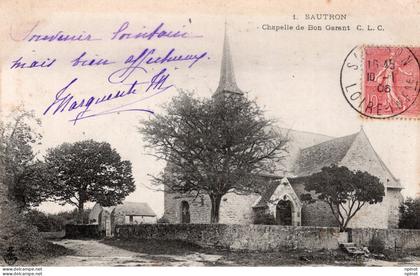 1. SAUTRON
Chapelle de Bon Garant C. L. C.
Souvenir lointain
mais bien affectueux
Marguerite M
16 45
10
06
LOIRE